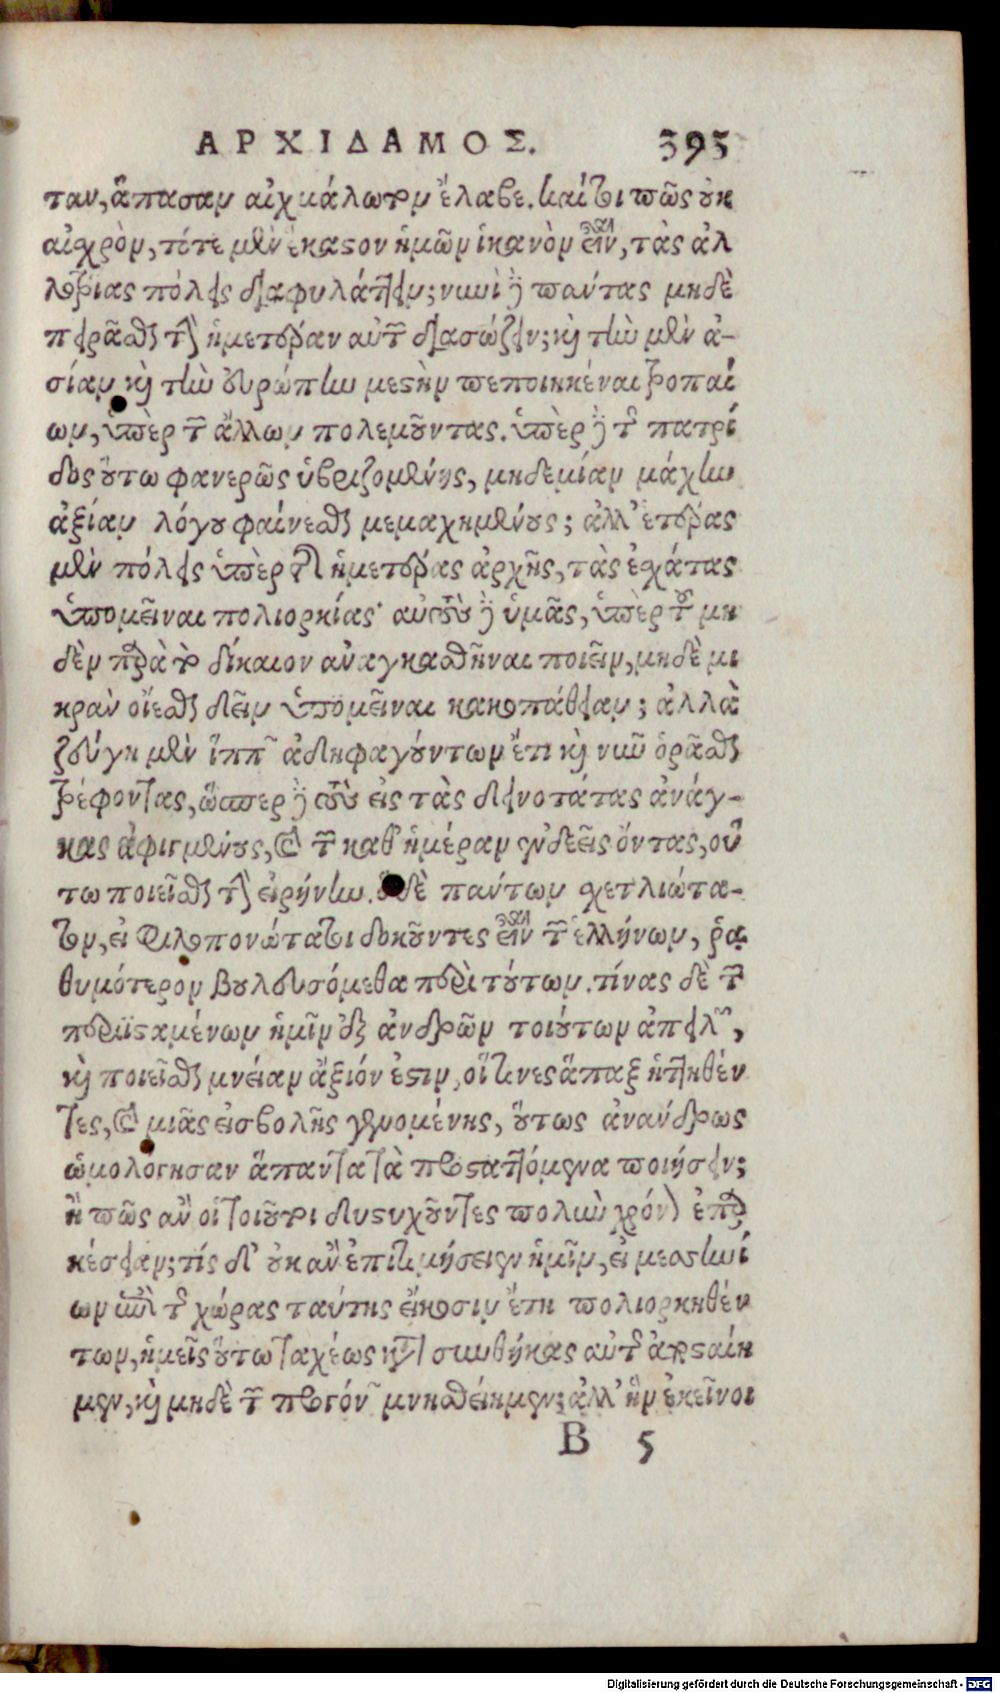 ΑΡΧΙΔΑΜΟΣ. 395
ταν, ἅπασαν αἰχμάλωτον ἔλαβε. καίτοι πῶς οὐκ
αἰσχρὸν, τότε μὲν ἕκαστον ἡμῶν ἱκανὸν εἶναι, τὰς ἀλ
λοτρίας πόλεις διαφυλάττειν; νυνὶ δὲ πάντας μηδὲ
πειρᾶσθαι τὴν ἡμετέραν αὐτῶν διασώζειν; καὶ τὴν μὲν ἀ-
σίαν καὶ τὴν εὐρώπην μεστὴν πεποιηκέναι τροπαί
ων, ὑπὲρ τῶν ἄλλων πολεμοῦντας. ὑπὲρ δὲ τῆς πατρί
δος οὕτω φανερῶς ὑβριζομένης, μηδεμίαν μάχην
ἀξίαν λόγου φαίνεσθαι μεμαχημένους; ἀλλ' ἑτέρας
μὲν πόλεις ὑπὲρ τῆς ἡμετέρας ἀρχῆς, τὰς ἐσχάτας
ὑπομεῖναι πολιορκίας· αὐτοὺς δὲ ὑμᾶς, ὑπὲρ τοῦ μη
δὲν παρὰ τὸ δίκαιον ἀναγκασθῆναι ποιεῖν, μηδὲ μι
κρὰν οἴεσθαι δεῖν ὑπομεῖναι κακοπάθειαν; ἀλλὰ
ζεύγη μὲν ἵππων ἀδηφαγούντων ἔτι καὶ νῦν ὁρᾶσθαι
τρέφοντας, ὥσπερ δὲ τοὺς εἰς τὰς δεινοτάτας ἀνάγ-
κας ἀφιγμένους, καὶ τῶν καθ' ἡμέραν ἐνδεεῖς ὄντας, οὕ
τω ποιεῖσθαι τὴν εἰρήνην. ὃ δὲ πάντων σχετλιώτα-
τον, εἰ φιλοπονώτατοι δοκοῦντες εἶναι τῶν ἑλλήνων, ῥα
θυμότερον βουλευσόμεθα περὶ τούτων. τίνας δὲ τῶν
περιισταμένων ἡμῖν ἐξ ἀνδρῶν τοιούτων ἀπειλῶν,
καὶ ποιεῖσθαι μνείαν ἄξιόν ἐστιν, οἵτινες ἅπαξ ἡττηθέν
τες, καὶ μιᾶς εἰσβολῆς γενομένης, οὕτως ἀνάνδρως
ὡμολόγησαν ἅπαντα τὰ προσταττόμενα ποιήσειν;
ἢ πῶς ἂν οἱ τοιοῦτοι δυστυχοῦντες πολὺν χρόνον ἐπαρ
κέσειαν; τίς δ' οὐκ ἂν ἐπιτιμήσειεν ἡμῖν, εἰ μεσσηνί
ων ὑπὲρ τῆς χώρας ταύτης εἴκοσιν ἔτη πολιορκηθέν
των, ἡμεῖς οὕτω ταχέως κατὰ συνθήκας αὐτῆς ἀποσταίη
μεν, καὶ μηδὲ τῶν προγόνων μνησθείημεν; ἀλλ' ἣν ἐκεῖνοι
B 5
Digitalisierung gefördert durch die Deutsche Forschungsgemeinschaft - DFG